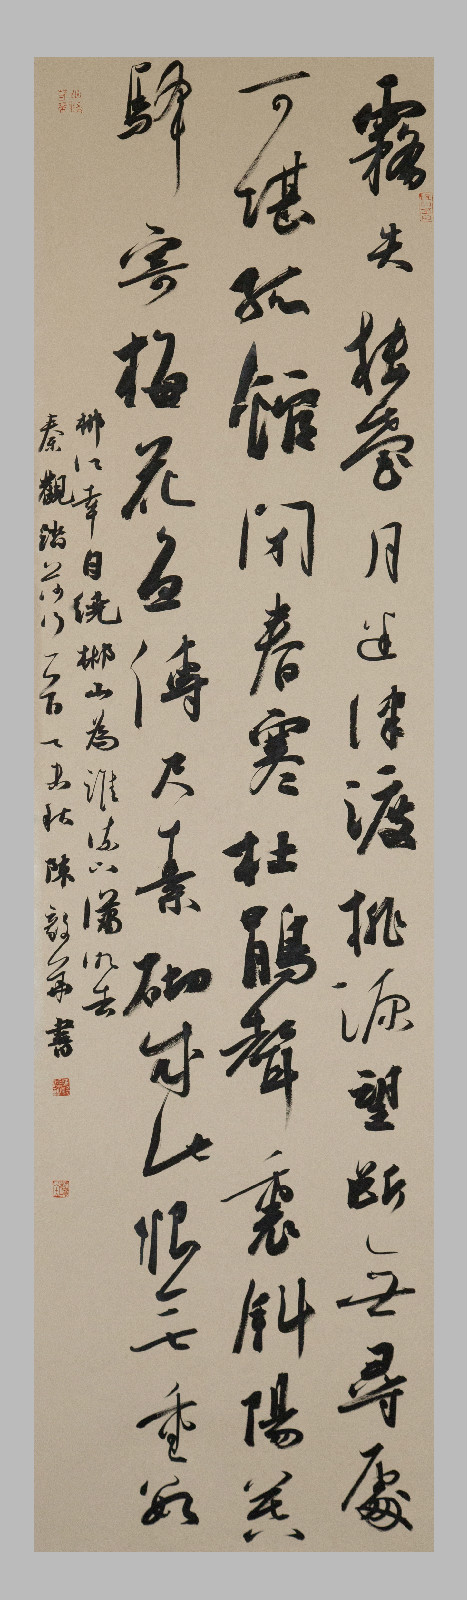 霧失樓臺月迷津渡桃源望斷無尋處
可堪孤館閉春寒杜鵑聲裏斜陽暮
驛寄梅花魚傳尺素砌成此恨無重數
郴江幸自繞郴山為誰流下瀟湘去
秦觀踏莎行秋陳毅華書